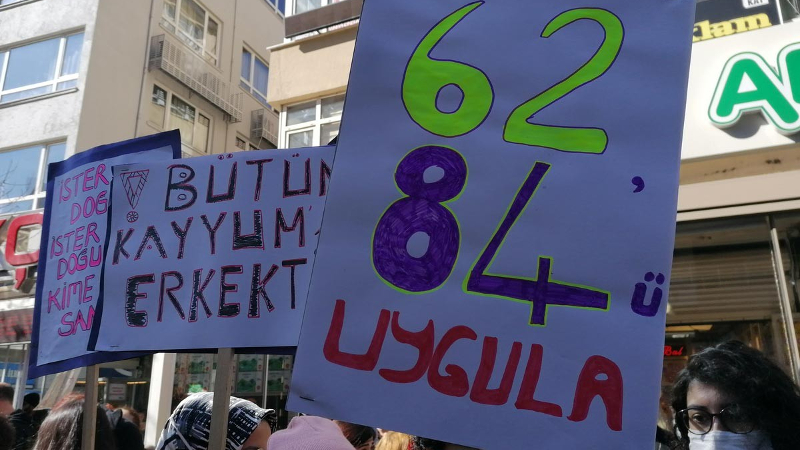 İSTER
DOĞ
İSTER
DOĞU
KİME
SAN
BÜTÜN
KAYYUM'
ERKEKT
62
84'ü
UYGULA